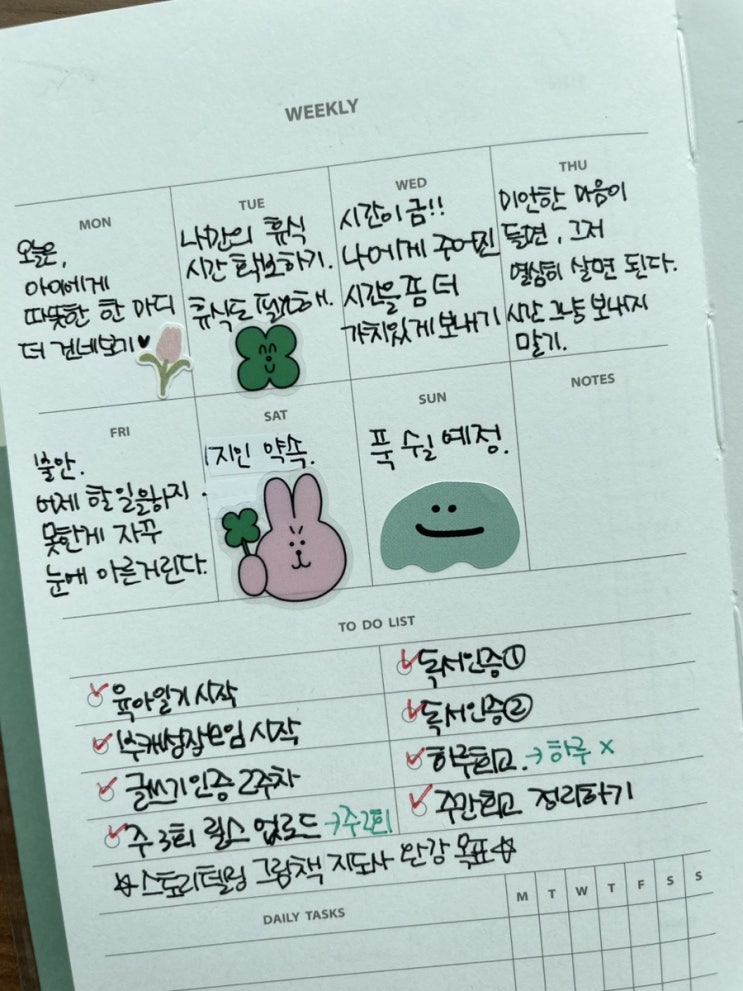 WEEKLY
MON
오늘은,
아이에게
따뜻한 한 마디
더 건네보기♥
TUE
나만의 휴식
시간 확보하기.
휴식도 필요해.
WED
시간이 금!!
나에게 주어진
시간을 좀 더
가치있게 보내기
THU
미안한 마음이
들면, 그저
열심히 살면 된다.
시간 그냥 보내지
말기.
FRI
불안.
어제 할일을하지
못한게 자꾸
눈에 아른거린다.
SAT
지인 약속.
SUN
푹 쉴 예정.
NOTES
TO DO LIST
육아일기 시작
부캐성장모임 시작
글쓰기인증 2주차
주 3회 릴스 업로드 →주2회
독서인증①
독서인증②
하루회고. →하루 x
주간회고 정리하기
☆스토리텔링 그림책 지도사 완강 목표☆
DAILY TASKS
M T W T F S S